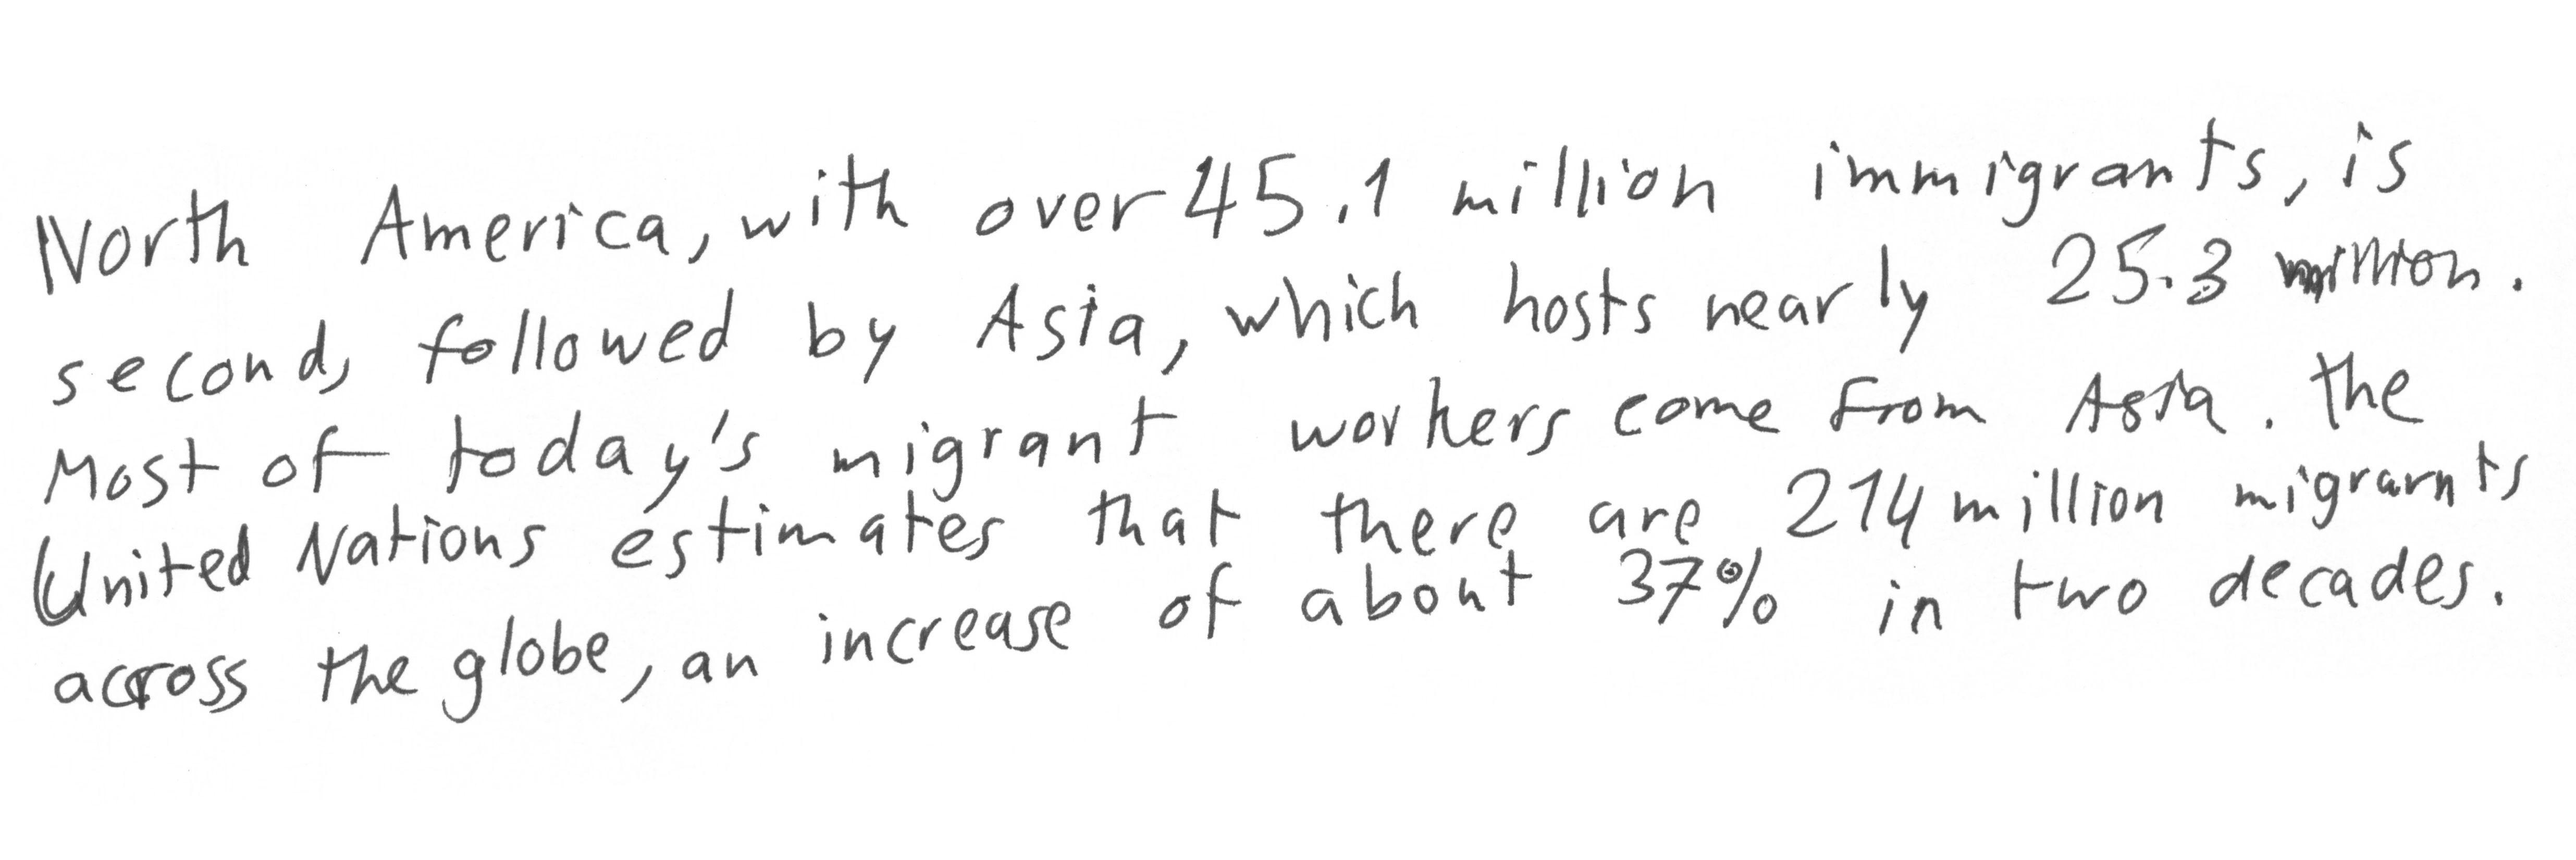 North America, with over 45.1 million immigrants, is
second, followed by Asia, which hosts nearly 25.3 million.
Most of today's migrant workers come from Asia. the
United Nations estimates that there are 214 million migrarnts
across the globe, an increase of about 37% in two decades.